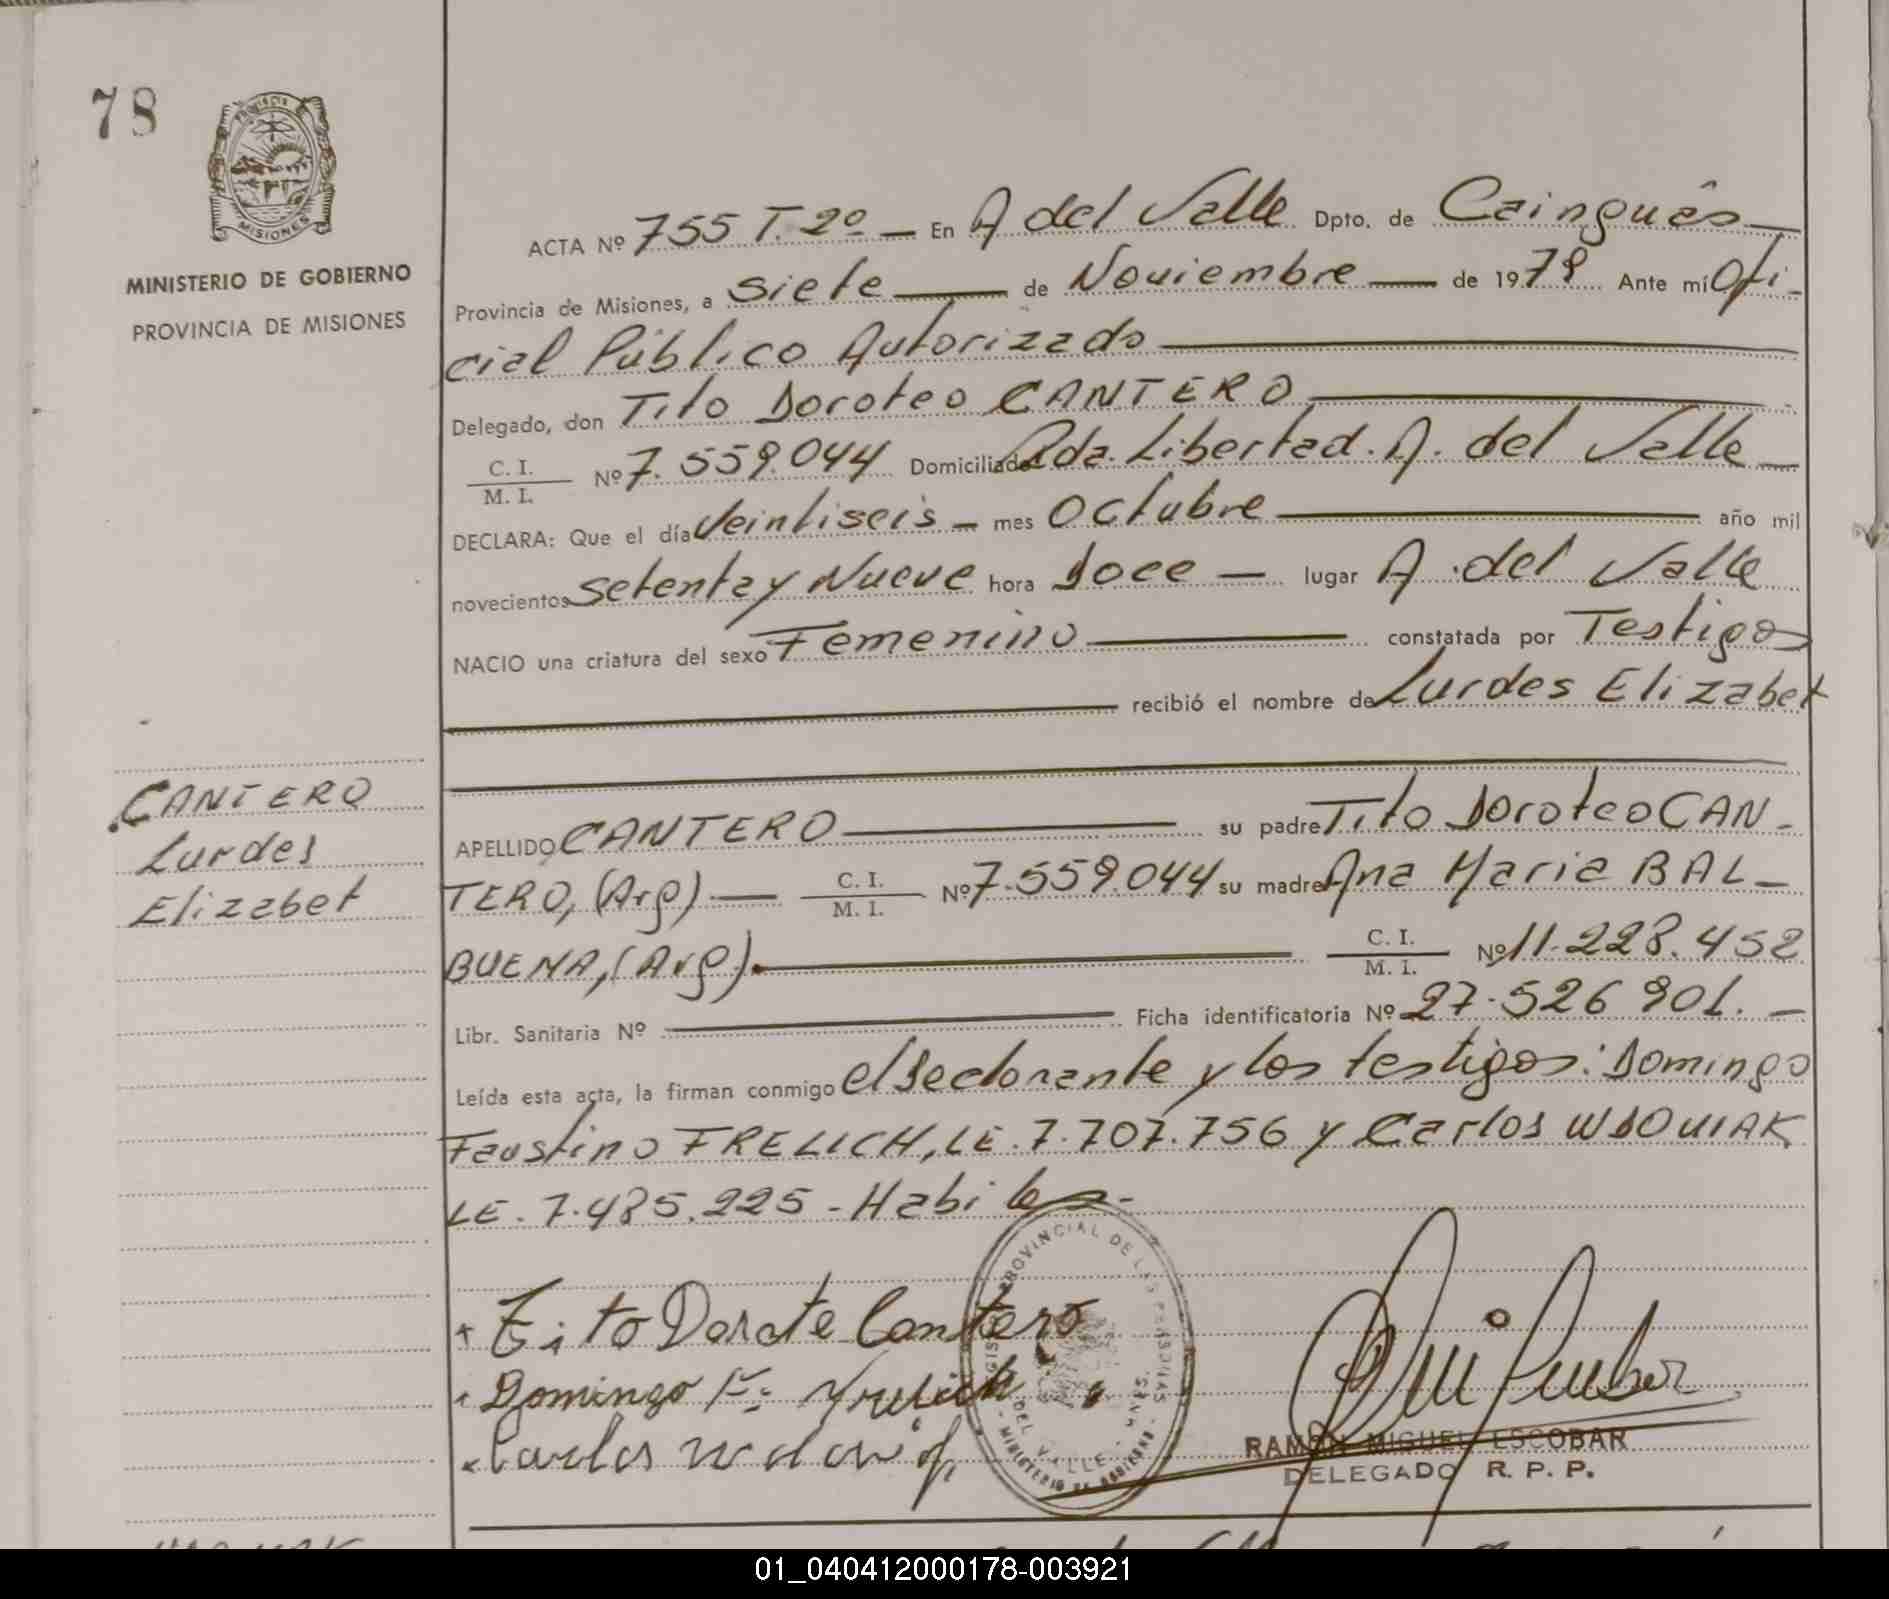 78
PROVINCIA
MISIONES
MINISTERIO DE GOBIERNO
PROVINCIA DE MISIONES
ACTA Nº 755 T. 2º — En A del Valle Dpto. de Cainguâs
Provincia de Misiones, a siete — de Noviembre — de 1979 Ante mí Ofi-
cial Público Autorizado
Delegado, don Tito Doroteo CANTERO
C. I.
M. I. Nº 7.559.044 Domiciliado Rda. Libertad. A. del Valle
DECLARA: Que el día Veintiseis — mes Octubre — año mil
novecientos setenta y Nueve hora Doce — lugar A. del Valle
NACIO una criatura del sexo Femenino — constatada por Testigos
recibió el nombre de Lurdes Elizabet
CANTERO
Lurdes
Elizabet
APELLIDO CANTERO — su padre Tito Doroteo CAN-
TERO, (Arg) — C. I. M. I. Nº 7.559.044 su madre Ana Maria BAL-
BUENA, (Arg). — C. I. M. I. Nº 11.228.452
Libr. Sanitaria Nº — Ficha identificatoria Nº 27.526 901. —
Leída esta acta, la firman conmigo el Declorante y los testigos: Domingo
Faustino FRELICH, LE. 7.707.756 y Carlos WDOWIAK
LE. 7.485.225 - Habiles-
Tito Dorote Cantero
Domingo F: Frelich
Carlos
PROVINCIAL DE LAS PERSONAS
DEL VALLE - MNES.
MINISTERIO DE GOBIERNO
RAMON MIGUEL ESCOBAR
DELEGADO R. P. P.
01_040412000178-003921